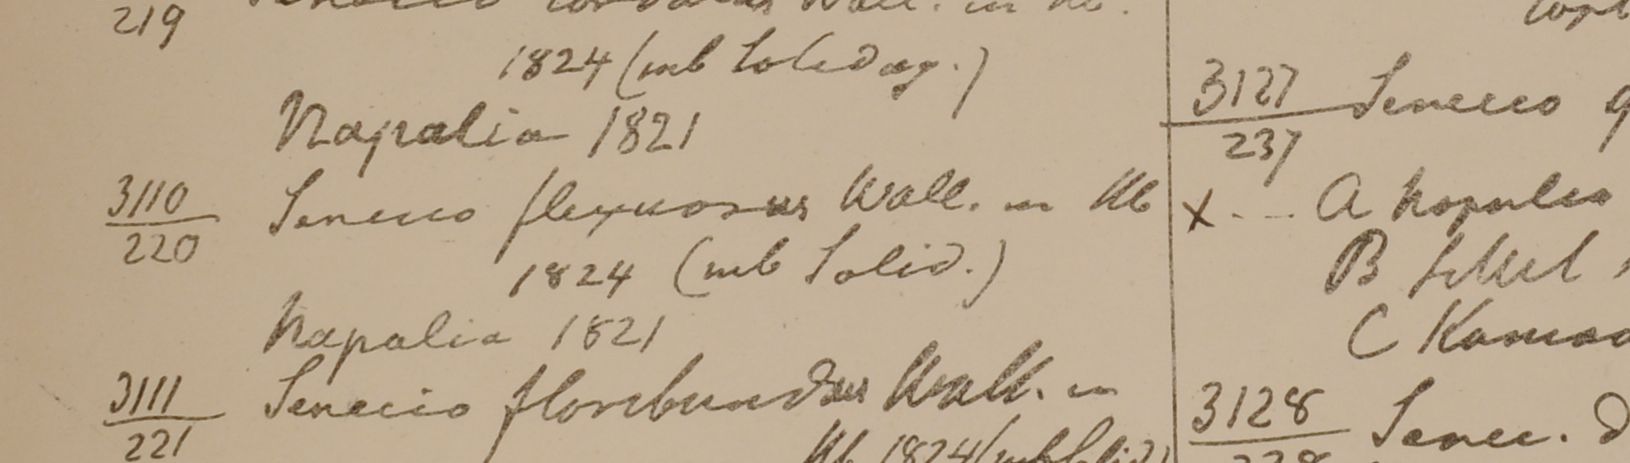 219 Senecio Wall. in Hb.
1824 (sub Solidag.)
Napalia 1821
3110 Senecio flexuosus Wall. in Hb
220 1824 (sub Solid.)
Napalia 1821
3111 Senecio floribundus Wall. in
221 Hb 1824 (sub Solid)
3127 Senecio
237
x -- A Napalia
B
C Kamao
3128 Senec. D